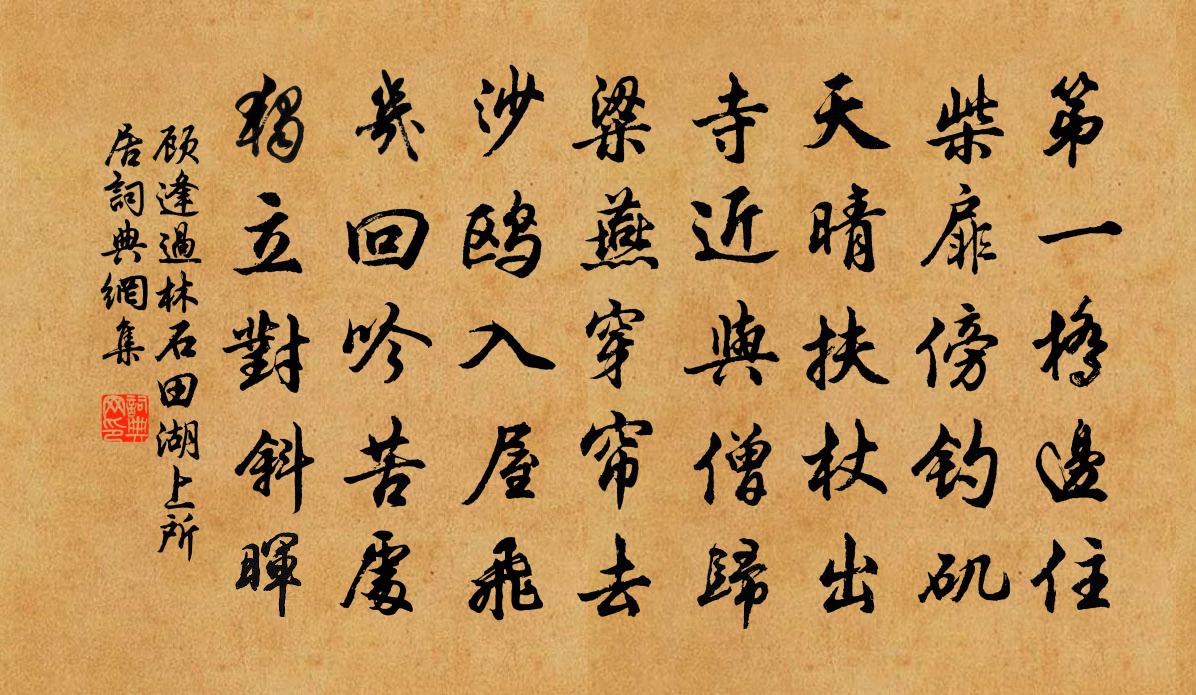 第一橋邊住
柴扉傍釣磯
天晴扶杖出
寺近與僧歸
梁燕穿帘去
沙鷗入屋飛
幾回吟苦處
獨立對斜暉
顾逢過林石田湖上所
居詞典網集
詞典
网印